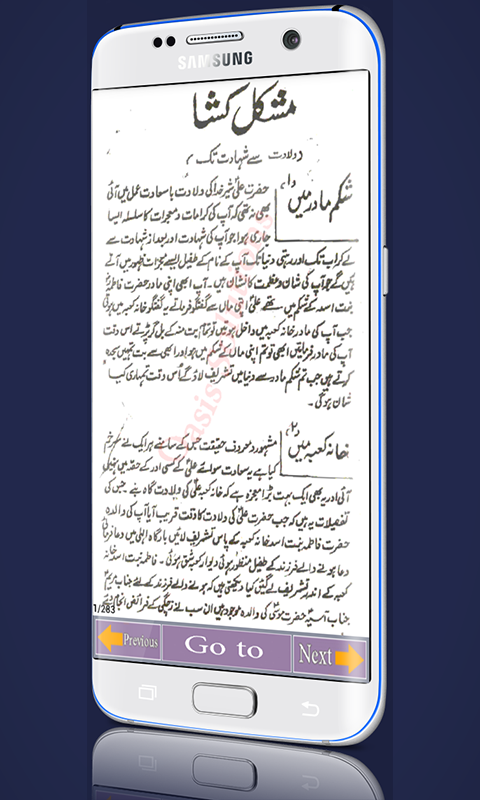 SAMSUNG
مشکل کشا
(ولادت سے شہادت تک)
شکم مادر میں
(۱)
حضرت علیؑ شیر خدا کی ولادت با سعادت عمل میں آئی
بھی نہ تھی کہ آپ کی کرامات و معجزات کا سلسلہ ایسا
جاری ہوا جو آپ کی شہادت اور بعد از شہادت سے
لے کر اب تک اور رہتی دنیا تک آپ کے نام کے طفیل ایسے معجزات ظہور میں آتے
ہیں گے جو آپ کی شان و عظمت کا نشان ہیں۔ آپ ابھی اپنی مادر حضرت فاطمہؑ
بنت اسد کے شکم میں تھے علیؑ اپنی ماں سے گفتگو فرماتے یہ گفتگو خانہ کعبہ میں ہوئی
جب آپ کی مادر خانہ کعبہ میں داخل ہوئیں تو تمام بت منہ کے بل گر پڑتے اس وقت
آپ کی مادر فرماتیں ابھی تو تم اپنی ماں کے شکم میں ہو اور ابھی سے بت تمہیں سجدہ
کرتے ہیں جب تم شکم مادر سے دنیا میں تشریف لاؤ گے اُس وقت تمہاری کیا
شان ہوگی۔
خانہ کعبہ میں
(۲)
مشہور و معروف حقیقت جس کے سامنے ہر ایک نے سر خم
کیا ہے یہ سعادت سوائے علیؑ کے کسی اور کے حصہ میں نہیں
آئی اور یہ بھی ایک بہت بڑا معجزہ ہے کہ خانہ کعبہ علیؑ کی ولادت گاہ بنے جس کی
تفصیلات یہ ہیں کہ جب حضرت علیؑ کی ولادت کا وقت قریب آیا آپ کی والدہ
حضرت فاطمہ بنت اسد خانہ کعبہ کے پاس تشریف لائیں بارگاہ الٰہی میں دعا فرمائی
دعا ہونے والے فرزند کے طفیل منظور ہوئی دیوار کعبہ شق ہوئی۔ فاطمہ بنت اسد خانہ
کعبہ کے اندر تشریف لے گئیں کیا دیکھتی ہیں کہ ہونے والے فرزند کے لئے جناب مریمؑ
جناب آسیہؑ حضرت موسیٰؑ کی والدہ موجود ہیں ان سب نے زچگی کے فرائض انجام دیے
Oasis Solutions
1/283
Previous
Go to
Next